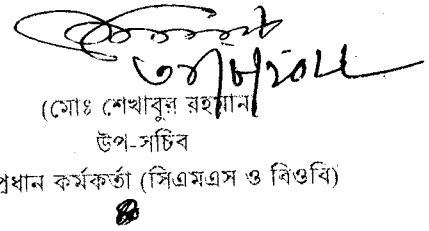 (মোঃ শেখাবুর রহমান
উপ-সচিব
প্রধান কর্মকর্তা (সিএমএস ও বিওবি)